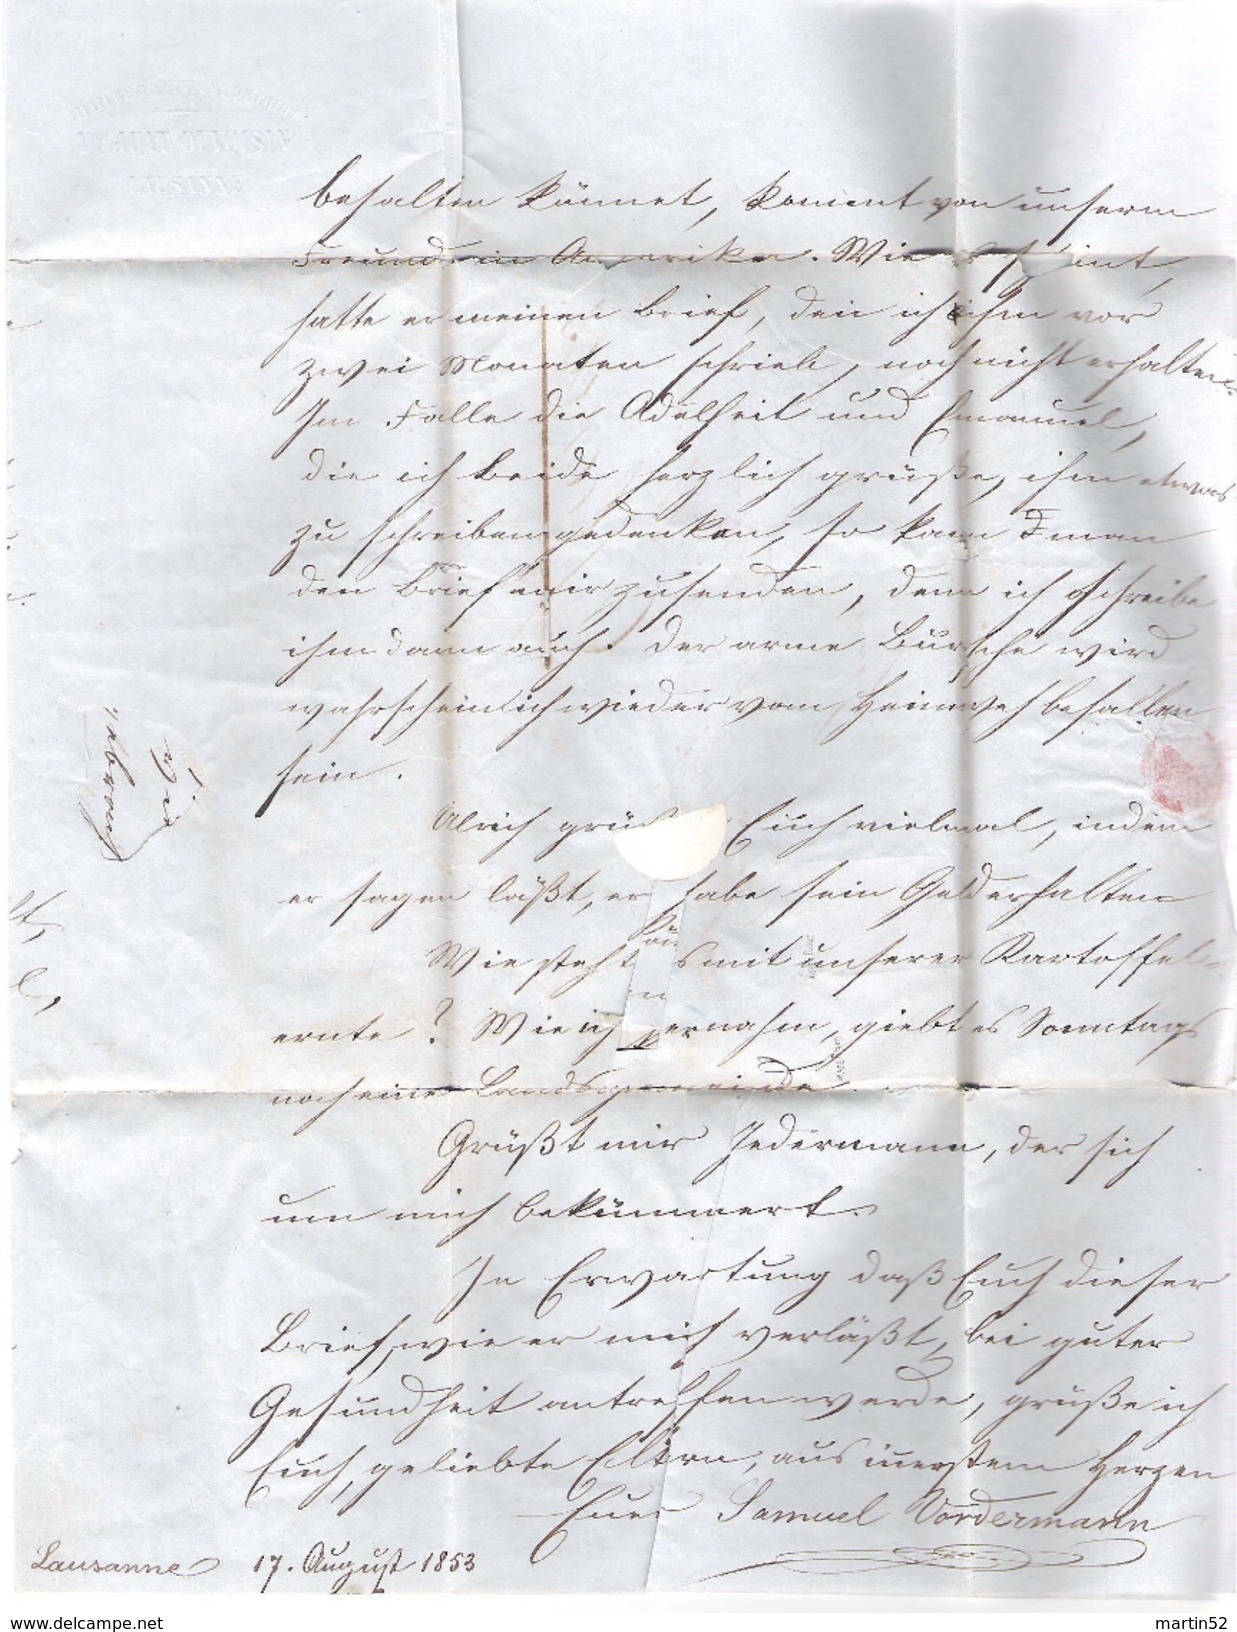 LAUSANNE
behalten könnet, kommt von unserm
Freunde in Amerika. Wie es scheint,
hatte er meinen Brief, den ich ihm vor
zwei Monaten schrieb, noch nicht erhalten.
Im Falle die Adelheit und Emanuel,
die ich beide herzlich grüße, ihm etwas
zu schreiben gedenken, so kann man
den Brief mir zusenden, denn ich schreibe
ihm dann auch. Der arme Bursche wird
wahrscheinlich wieder vom Heimweh befallen
sein.
Ulrich grüßt Euch vielmal, indem
er sagen läßt, er habe sein Geld erhalten
Wie steht es mit unserer Kartoffel-
ernte? Wie ich vernahm, giebt es Sonntags
noch eine Landsgemeinde.
Grüßt mir Jedermann, der sich
um mich bekümmert.
In Erwartung daß Euch dieser
Brief, wie er mich verläßt, bei guter
Gesundheit antreffen werde, grüße ich
Euch, geliebte Eltern, aus innerstem Herzen
Euer Samuel Vordermann
Lausanne 17. August 1853
www.delcampe.net
martin52